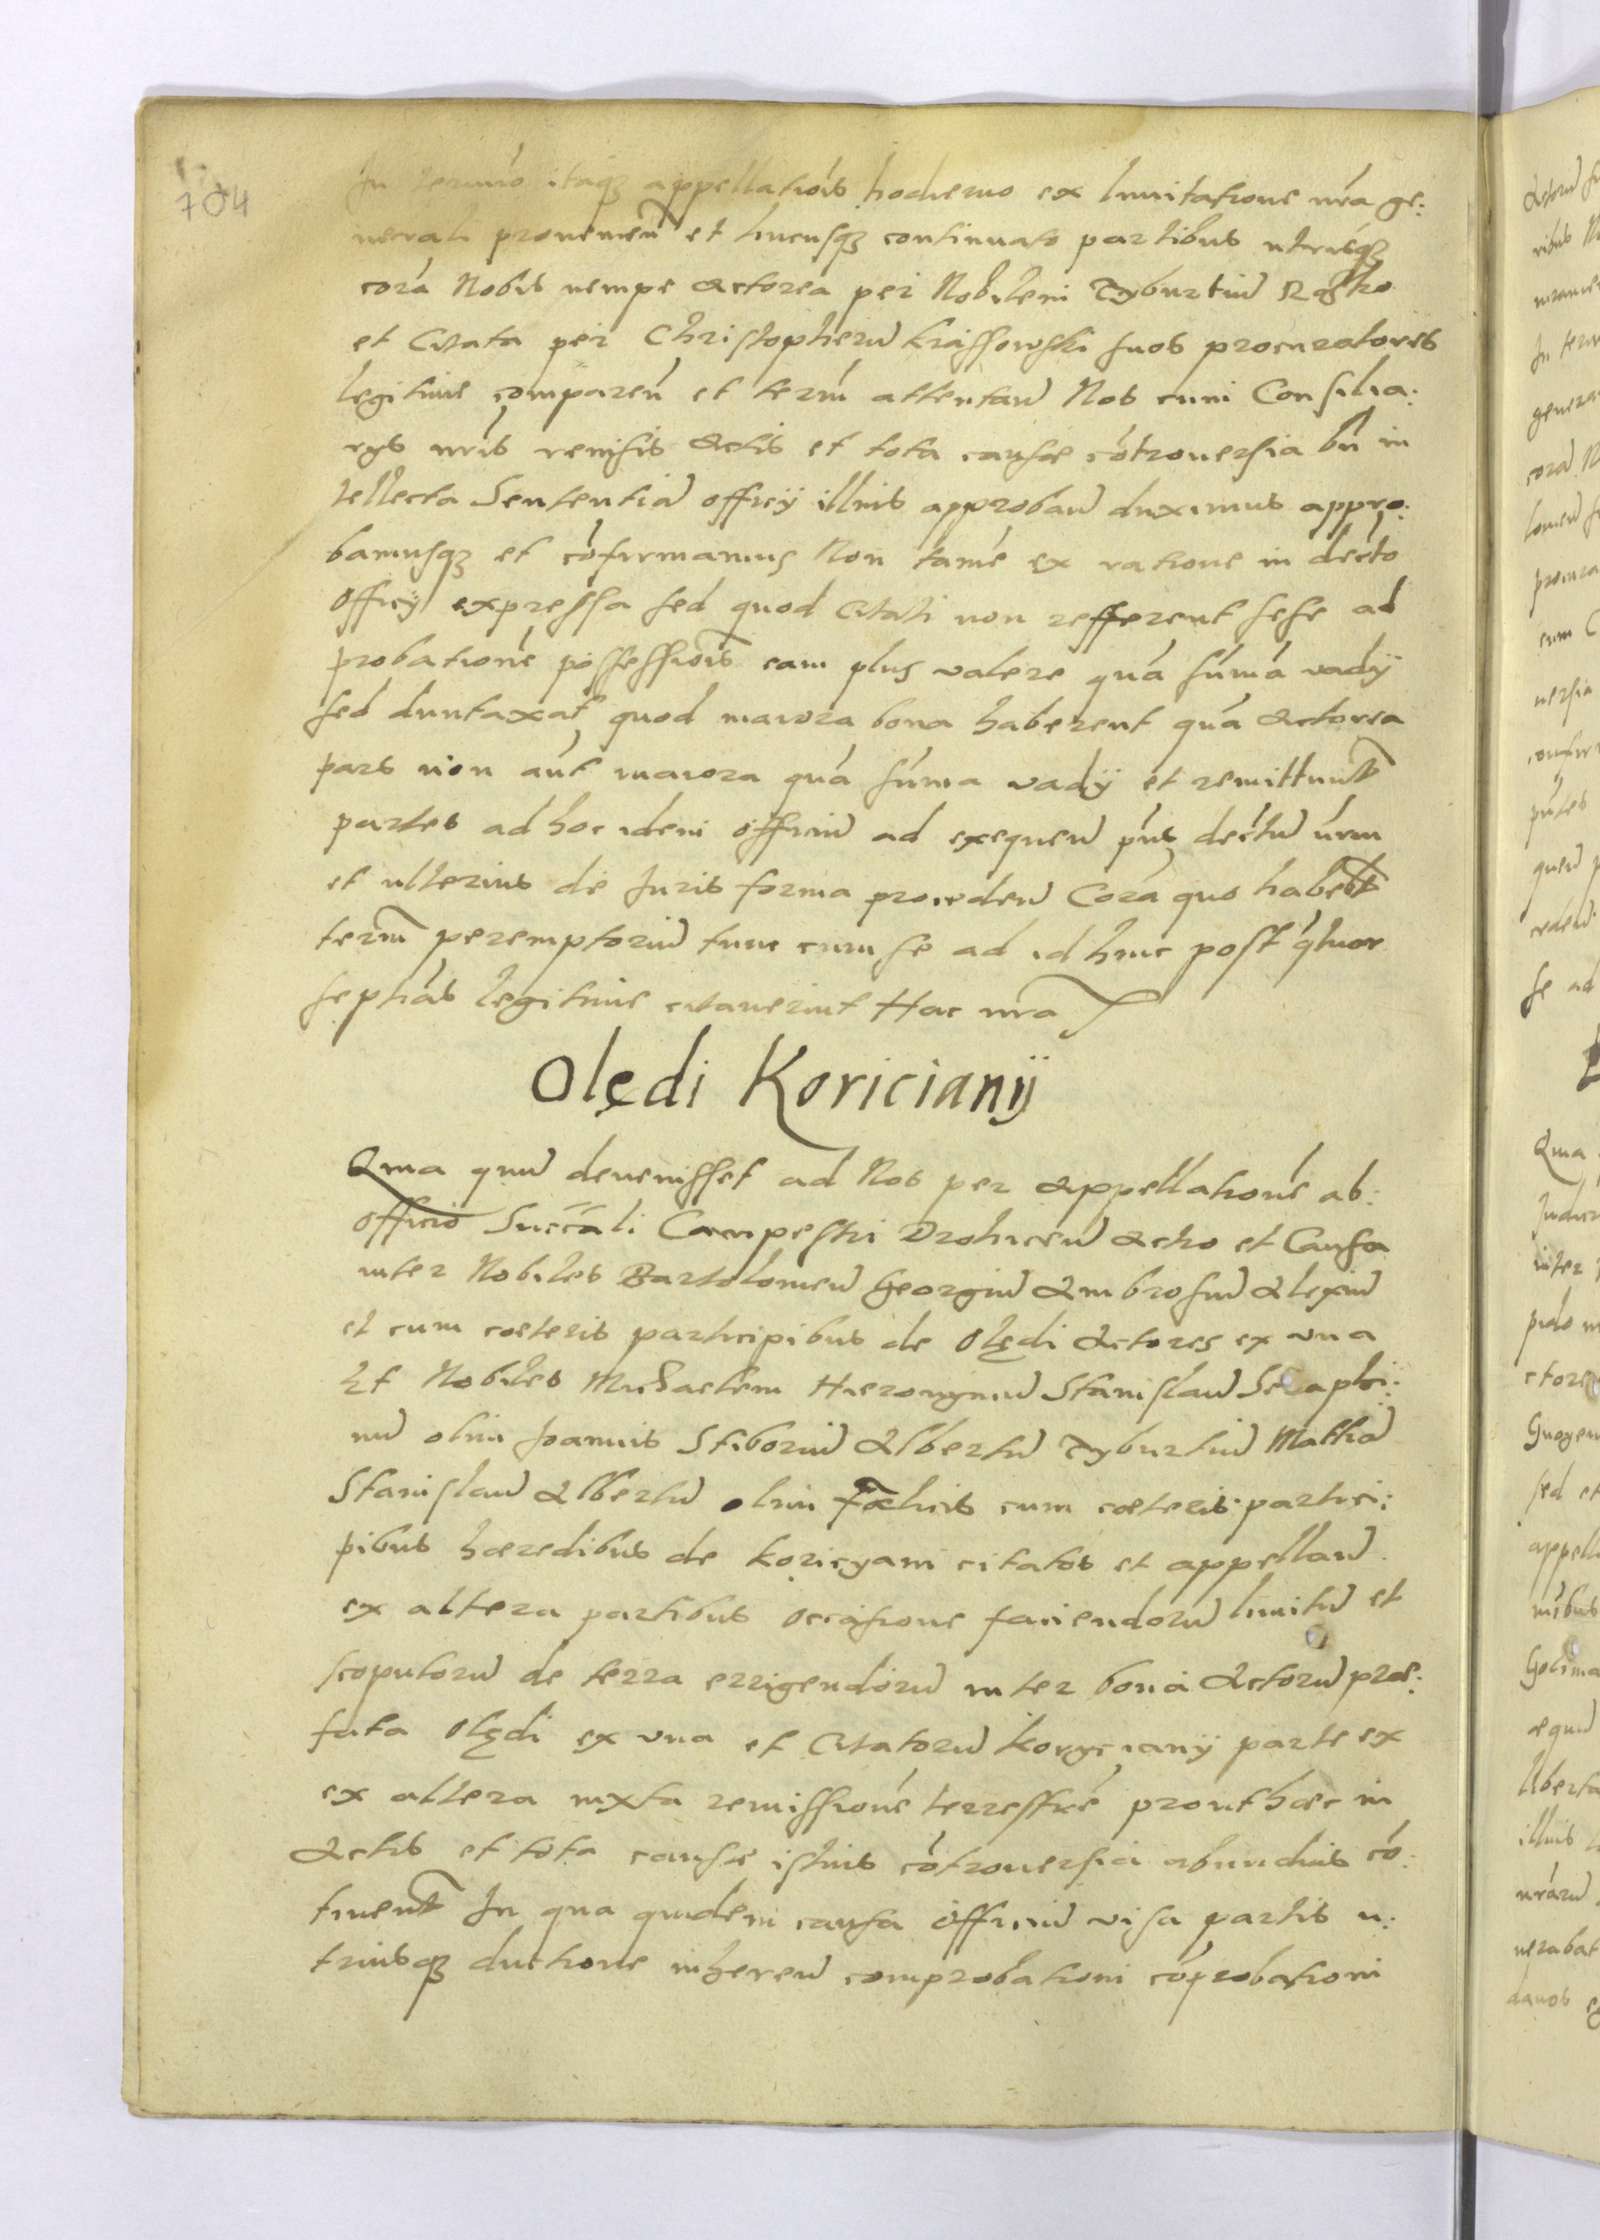 704
In termīo itaq3 appellatiōis hodierno ex limitatione nrā ge:
nerali provenien̄ et hucusq3 continuato partibus utrisq3
corā Nobis nempe Actorea per Nobilem Tyburtiū
et Citata per Christopherū Krassowski suos procuratores
legitime comparen̄ et term̄ attentan̄ Nos cum Consilia:
rys nrīs revisis Actis et tota causæ cōtroversia bn̄ in
tellecta Sententiā officÿ illius approban̄ duximus appro:
bamusq3 et cōfirmamus Non tamē ex ratione in decr̄to
officÿ expressa sed quod Citati non refferent sese ad
probationē possessiōis eam plus valere quā sūmā vadÿ
sed duntaxat quod maiora bona haberent quā Actorea
pars non aūt maiora quā sūma vadÿ et remittunt̄
partes ad hoc idem officiū ad exequen̄ pn̄s decr̄tū nr̄m
et ulterius de Juris forma proceden̄ Corā quo habebt̄
term̄ peremptoriū tunc cum se ad id hinc post q̄tuor
septiās legitime citaverint Hac nra
Olędi Koricianÿ
Qma quū devenisset ad Nos per Appellationē ab:
officio Succāli Campestri Drohicen̄ Actio et Causa
inter Nobiles Bartolomeū Georgiū Ambrosiū Alexiū
et cum cœteris participibus de Olędi Actores ex una
Et Nobiles Michaelem Hieronymū Stanislaū Seraphi:
nū olim Joannis Stiboriū Albertū Tyburtiū Mathiā
Stanislaū Albertū olim Fœlicis cum cœteris partici:
pibus hæredibus de Koricyani citatos et appellan̄
ex altera partibus occasione faciendorū limitū et
scopulorū de terra errigendorū inter bona Actorū præ:
fata Olędi ex una et Citatorū Korycianÿ parte ex
ex altera iuxta remissionē terrestrē prout hæc in
Actis et tota causæ istius cōtroversia abundius cō:
tinent̄ In qua quidem causa officiū visa partis u:
triusq3 ductione inheren̄ comprobationi cōprobationi